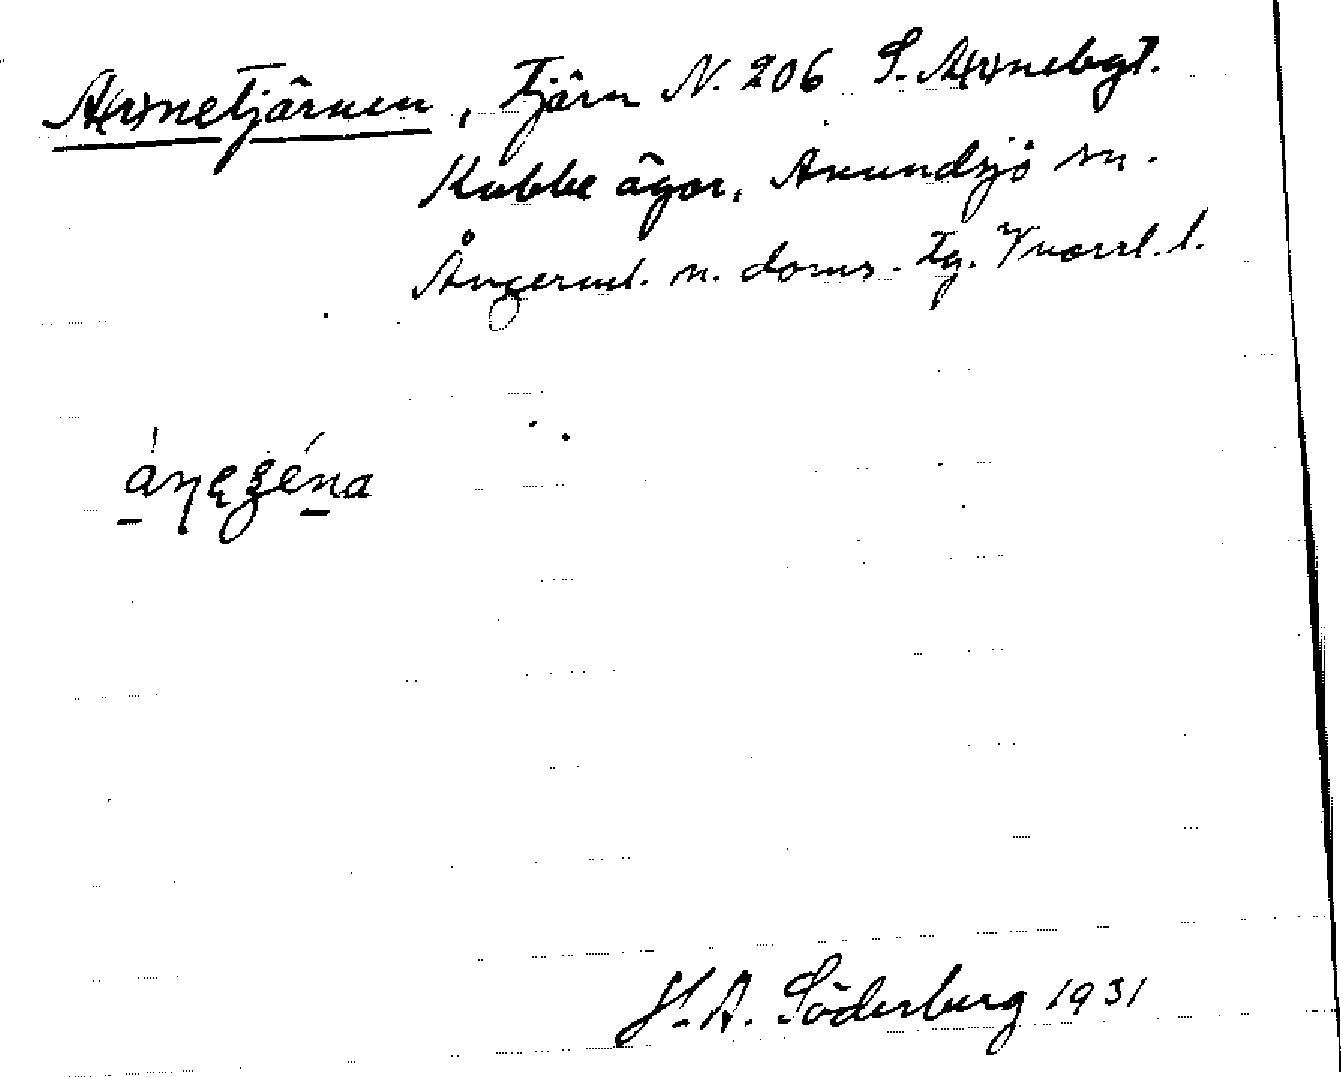 A(r)netjärnen, Tjärn N. 206 S. A(r)nebgt.
Kubbe ägor, Anundsjö sn.
Ångerml. n. doms. tg. Vnorrl. l.
H. A. Söderberg 1931